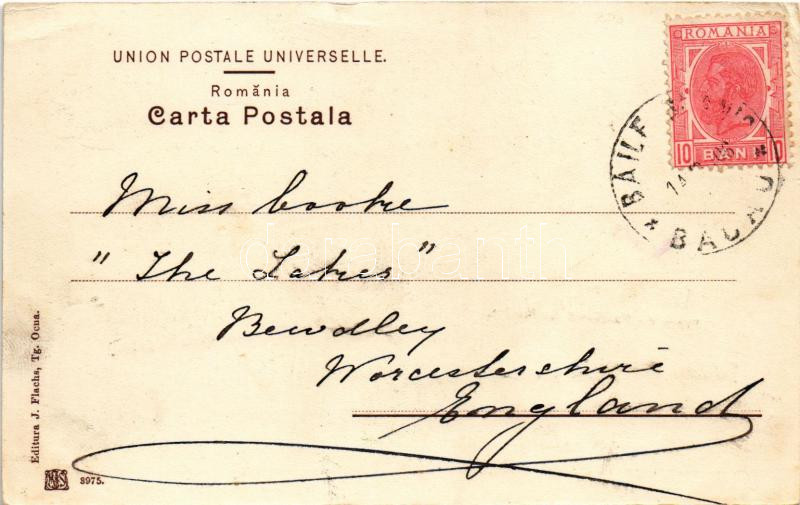 UNION POSTALE UNIVERSELLE.
România
Carta Postala
ROMANIA
10 BANI 10
BAILE
BACAU
Miss Cooke
"The Lakes"
Bewdley
Worcestershire
England
Editura J. Flachs, Tg. Ocna.
3975.
darabanth